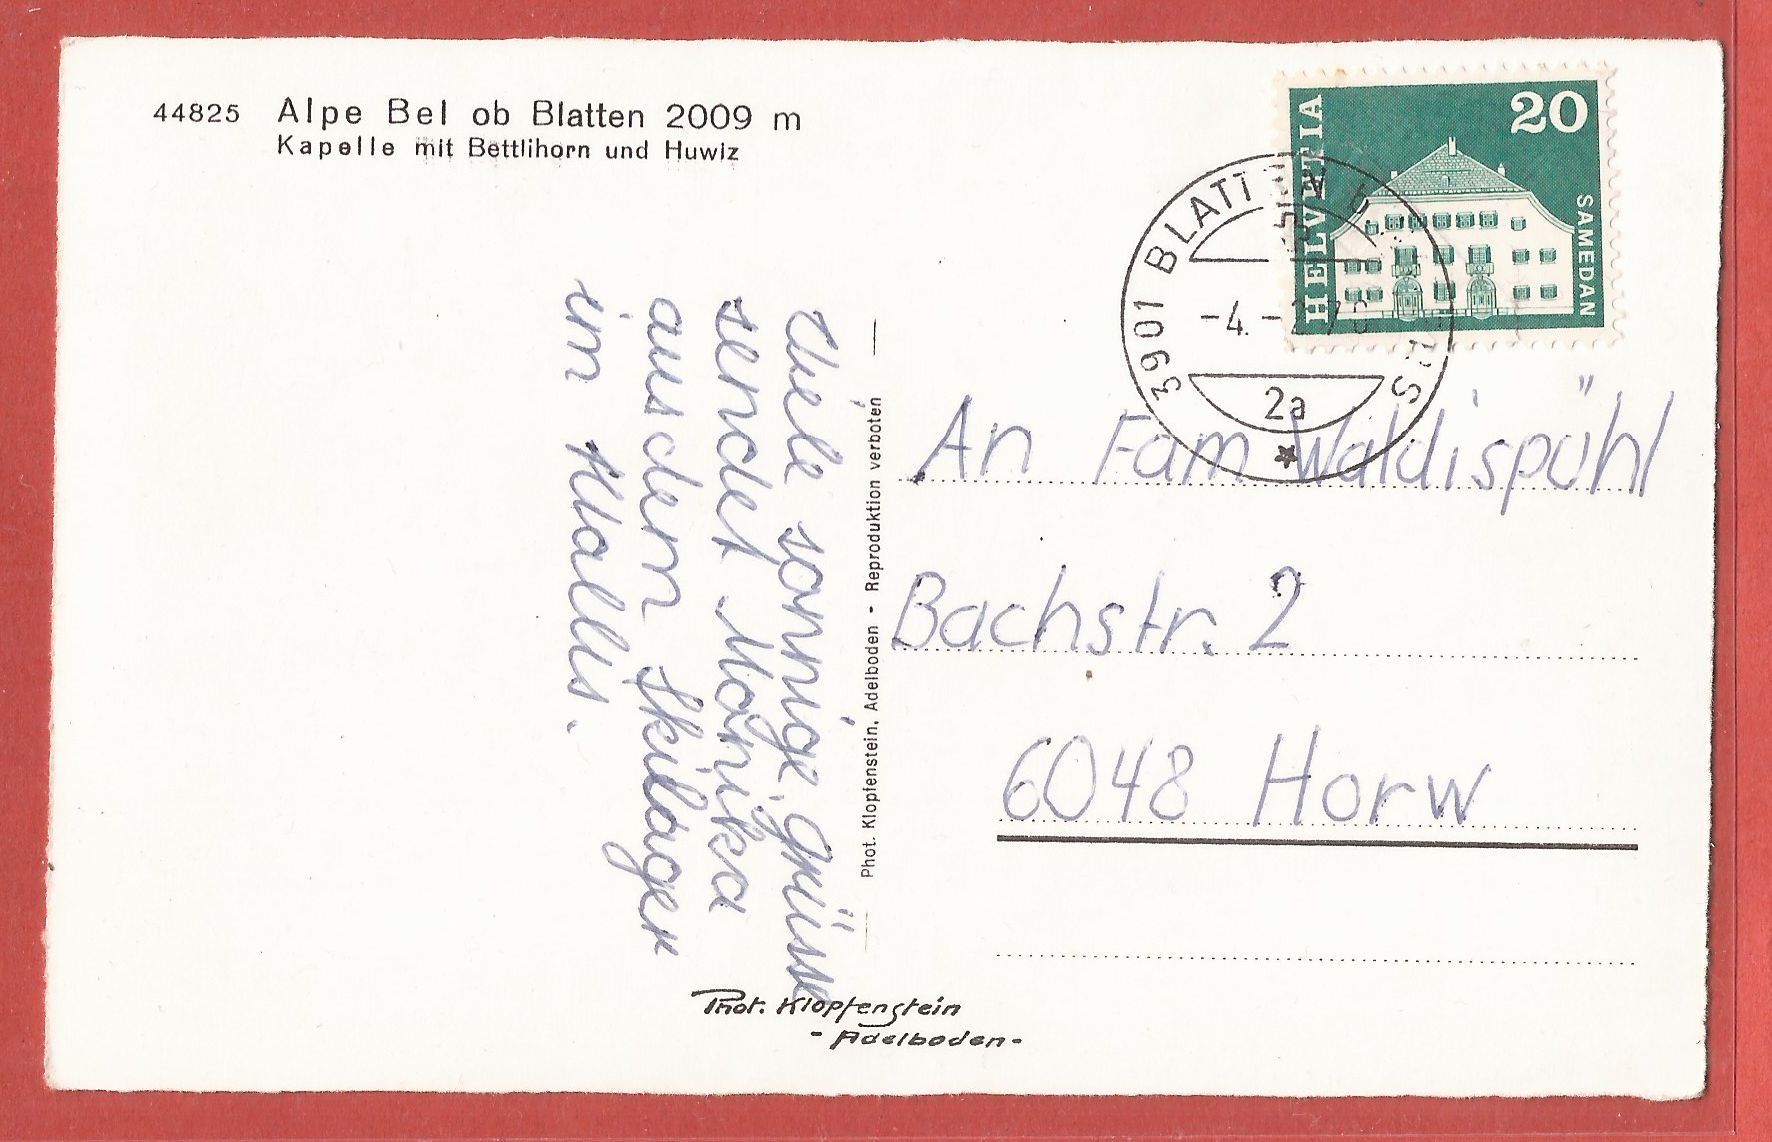 44825 Alpe Bel ob Blatten 2009 m
Kapelle mit Bettlihorn und Huwiz
HELVETIA
20
SAMEDAN
3901 BLATTEN B. NATERS
-4.-2.76
2a
Viele sonnige Grüsse
sendet Monika
aus dem Skilager
im Wallis.
Phot. Klopfenstein, Adelboden - Reproduktion verboten
An Fam Waldispühl
Bachstr. 2
6048 Horw
Phot. Klopfenstein
- Adelboden -